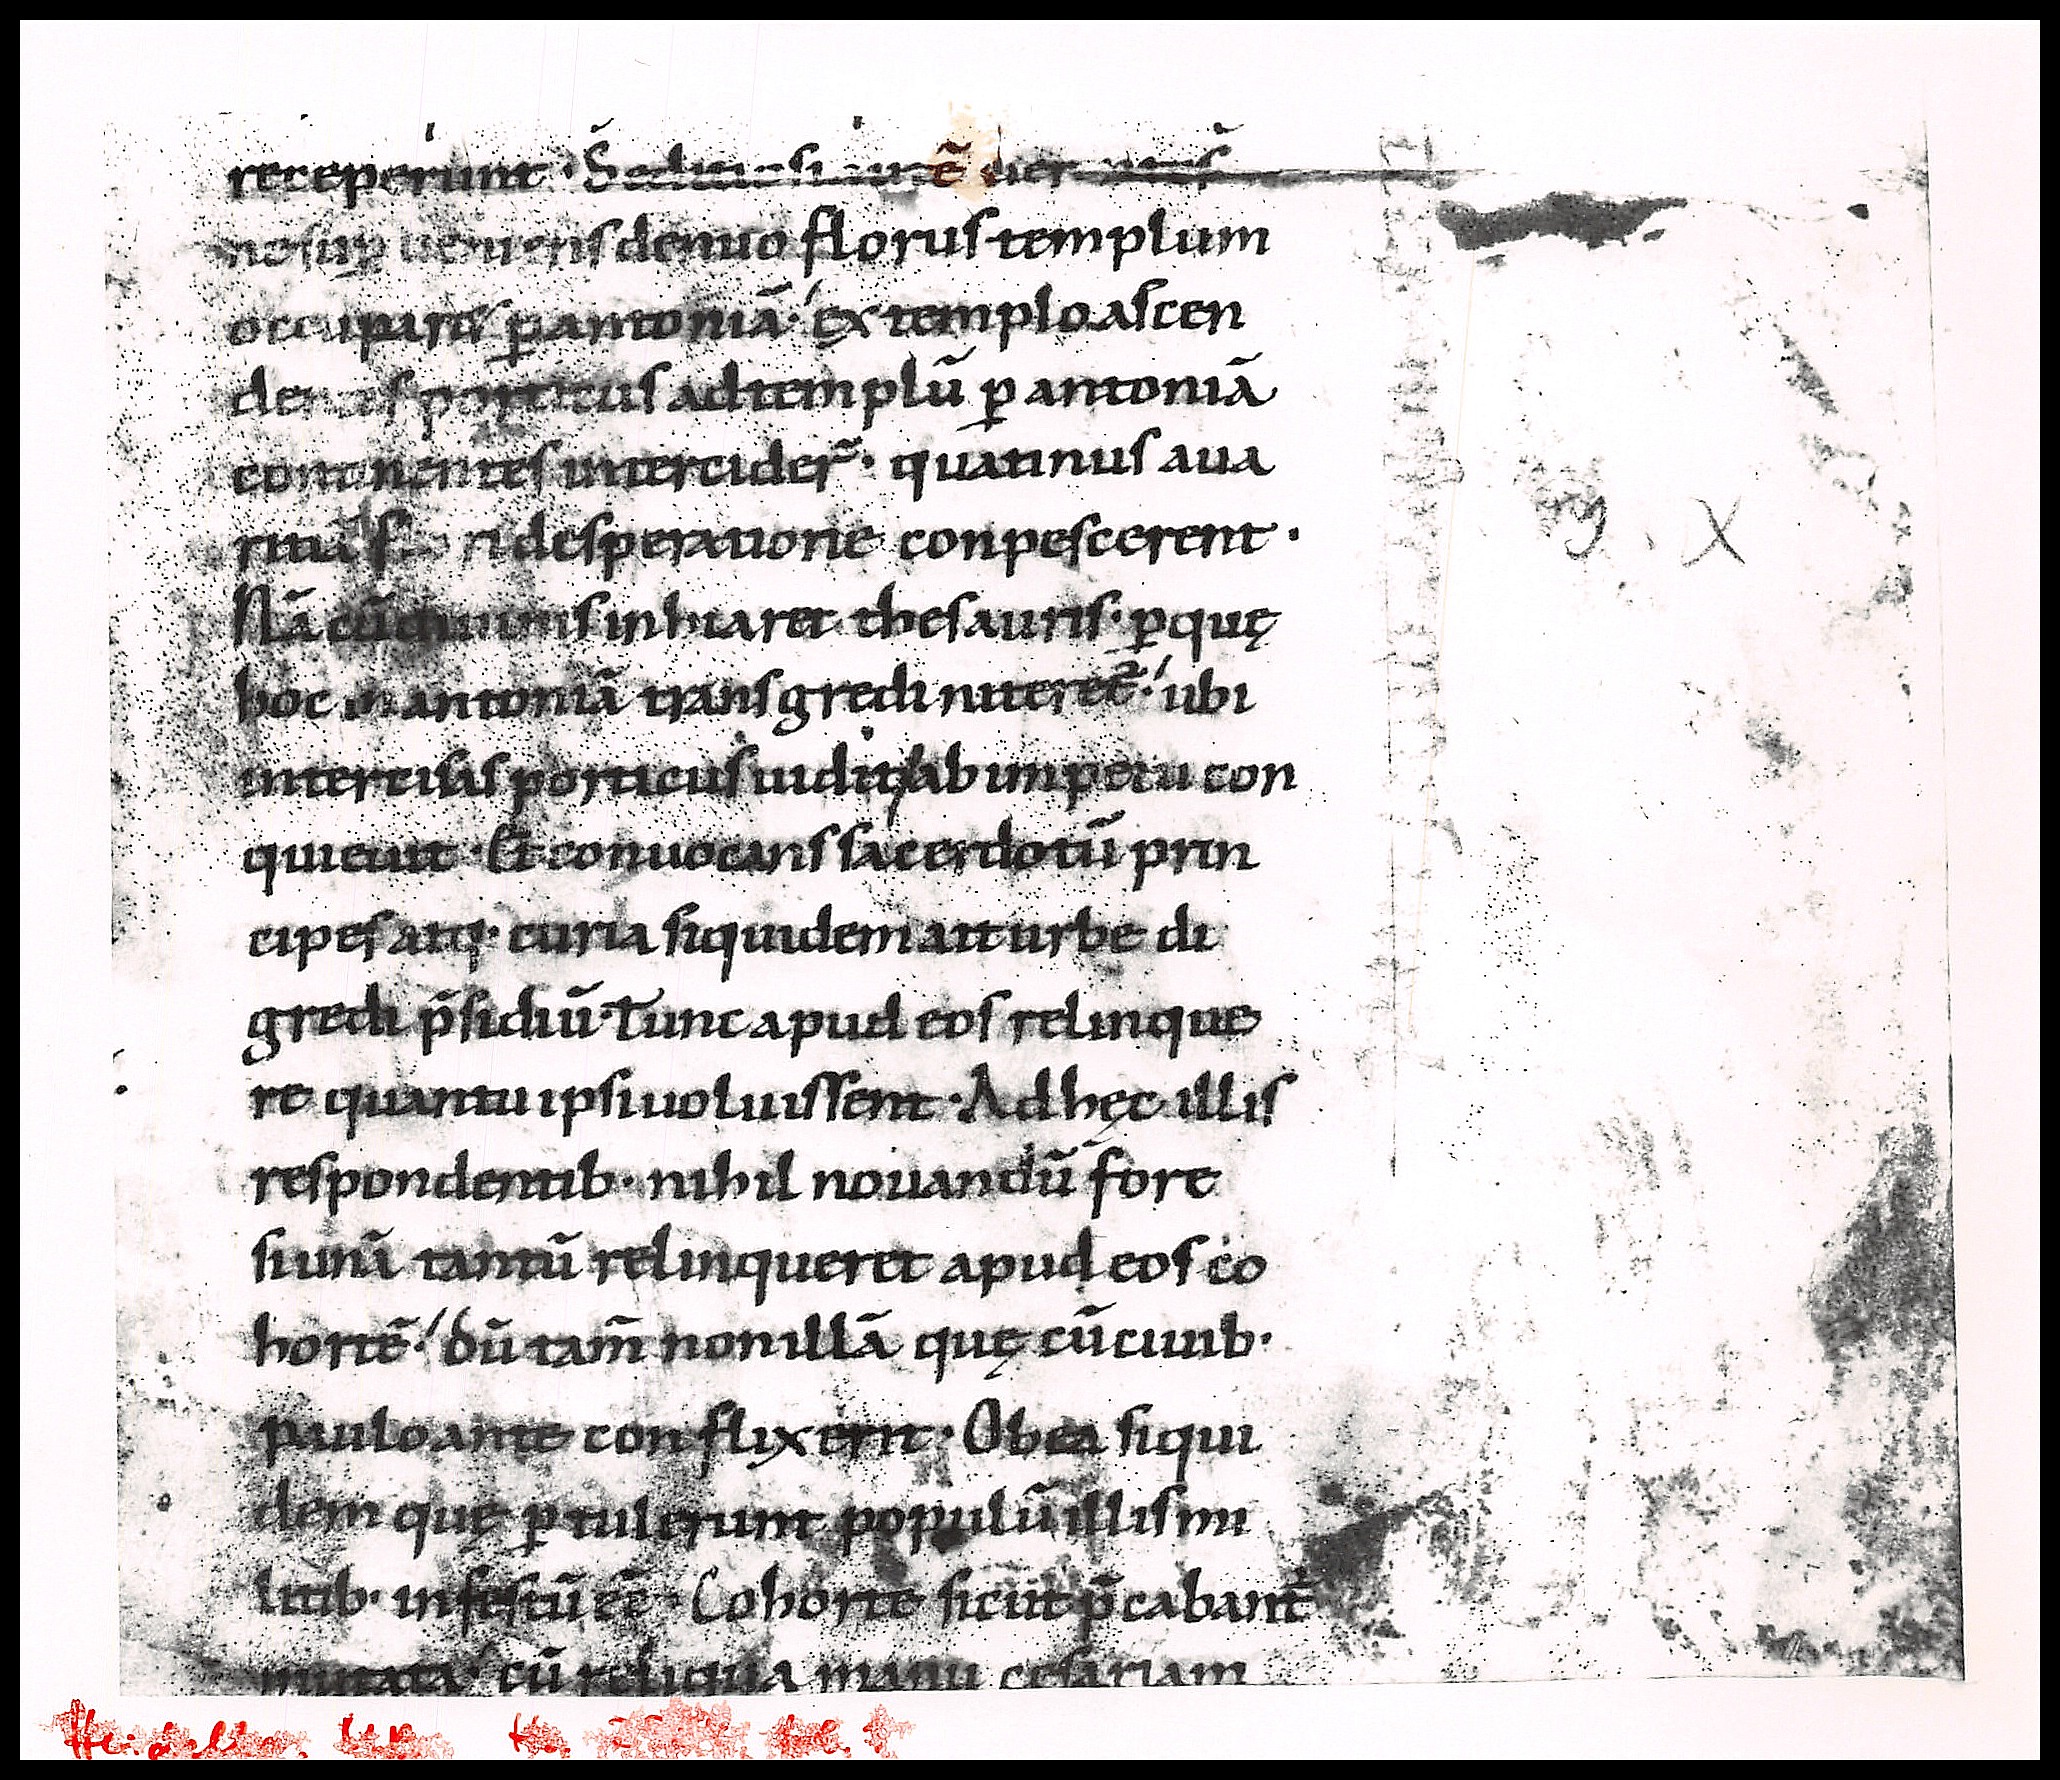 receperunt · h̄ seditiosi
uenienſ denuo floruſ templum
occuparet ꝑ antoniā·' ęx templo aſcen
denteſ porticuſ ad templū ꝑ antoniā
continenteſ interciderͬ · quatinuſ aua
ritiā desperatione conpeſcerent ·
Nā cū inhiaret theſauriſ · ꝑquę
hoc in antoniā tranſgredi niteretͬ·' ubi
interciſaſ porticuſ uidit ab impetu con
quieuit · Et conuocanſ ſacerdotū prin
cipeſ atq; curia ſiquidem ait urbe di
gredi p̄ſidiū · Tunc apud eoſ relinque
re quantu ipſi uoluiſſent · Ad hęc illiſ
reſpondentib · nihil nouandū fore
ſi unā tantū relinqueret apud eoſ co
hortē·' dū tam̄ non illā quę cū ciuib ·
paulo ante conflixerit · Ob ea ſiqui
dem quę ꝑtulerunt populū illiſ mi
litib · infeſtū eē · Cohorte ſicut p̄cabant̄
mutata · cū reliqua manu ceſariam